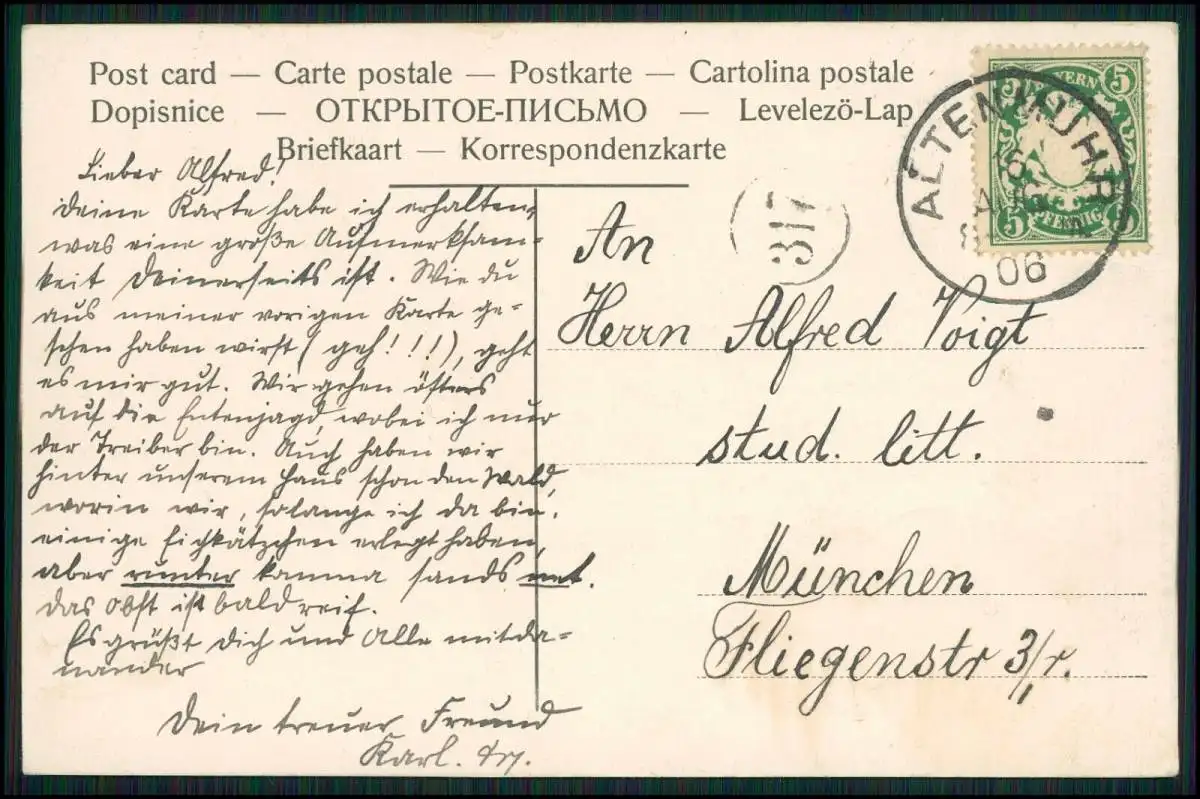 Post card — Carte postale — Postkarte — Cartolina postale
Dopisnice — ОТКРЫТОЕ-ПИСЬМО — Levelezö-Lap
Briefkaart — Korrespondenzkarte
Lieber Alfred!
Deine Karte habe ich erhalten,
was eine große Aufmerksam-
keit Deinerseits ist. Wie du
aus meiner vorigen Karte ge-
sehen haben wirst (geh!!!), geht
es mir gut. Wir gehen öfters
auf die Entenjagd, wobei ich nur
der Treiber bin. Auch haben wir
hinter unserem Haus schon den Wald,
worin wir, solange ich da bin,
einige Eichkätzchen erlegt haben,
aber runter kamma sands net.
Das Obst ist bald reif.
Es grüßt Dich und Alle mitda-
nander
Dein treuer Freund
Karl.
An
Herrn Alfred Voigt
stud. litt.
München
Fliegenstr 3/1 r.
317
ALTENMUHR
16
AUG
06
BAYERN
5
5
5
5
PFENNIG